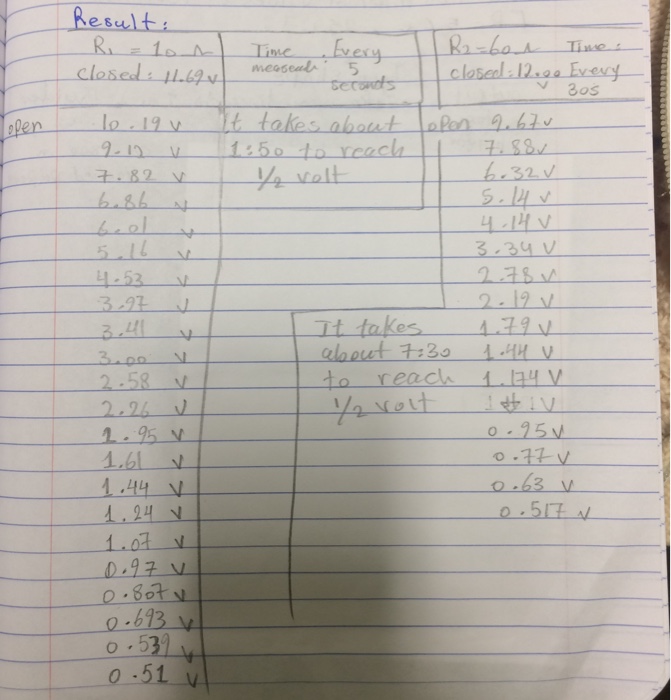 Result:
R1 = 10 Ω
closed: 11.69 v
Time : Every
5
seconds
R2=60Ω Time:
closed:12.00 Every
v 30s
open
10.19 v
9.12 v
7.82 v
6.86 v
6.01 v
5.16 v
4.53 v
3.97 v
3.41 v
3.00 v
2.58 v
2.26 v
1.95 v
1.61 v
1.44 v
1.24 v
1.07 v
0.97 v
0.807 v
0.693 v
0.539 v
0.51 v
It takes about
1:50 to reach
1/2 volt
open 9.67v
7.88v
6.32v
5.14 v
4.14 v
3.34 v
2.78 v
2.19 v
1.79 v
1.44 v
1.174 v
It takes
about 7:30
to reach
1/2 volt
0.95v
0.77v
0.63 v
0.517 v